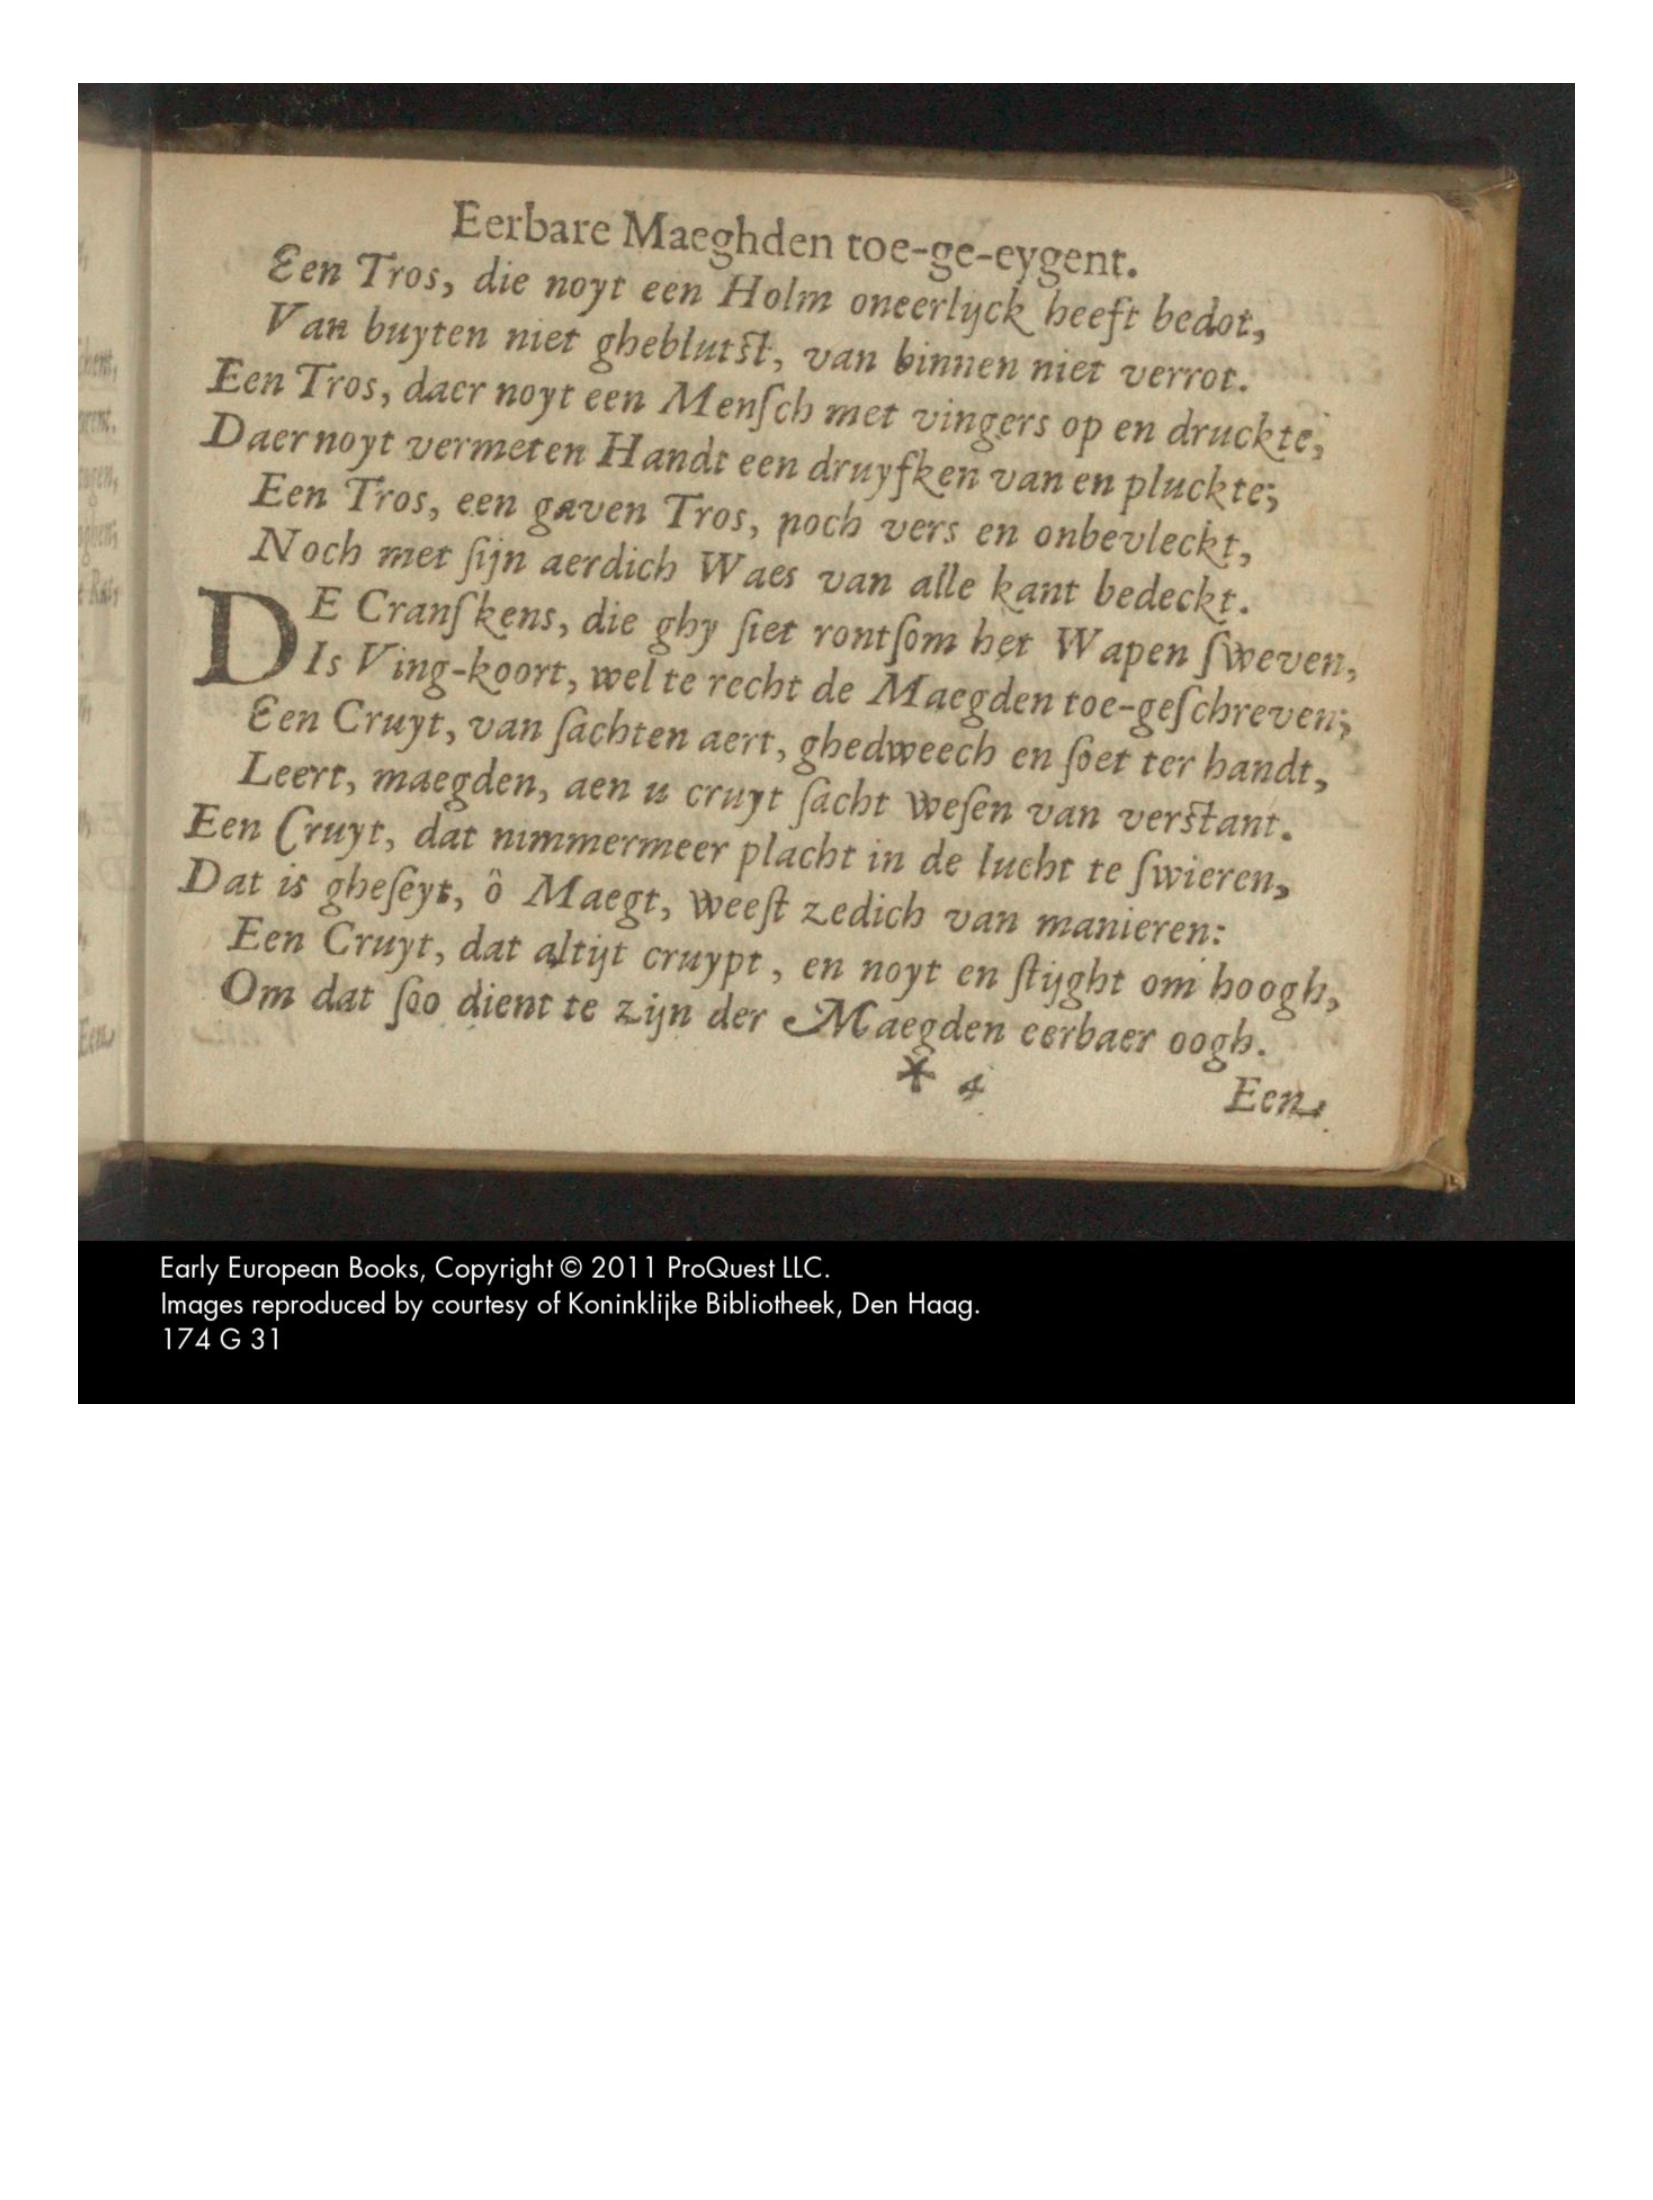 Eerbare Maeghden toe-ge-eygent.
Een Tros, die noyt een Holm oneerlyck heeft bedot,
Van buyten niet gheblutſt, van binnen niet verrot.
Een Tros, daer noyt een Menſch met vingers op en druckte,
Daer noyt vermeten Handt een druyfken van en pluckte;
Een Tros, een gaven Tros, noch vers en onbevleckt,
Noch met ſijn aerdich Waes van alle kant bedeckt.
DE Cranſkens, die ghy ſiet rontſom het Wapen ſweven,
Is Ving-koort, wel te recht de Maegden toe-geſchreven;
Een Cruyt, van ſachten aert, ghedweech en ſoet ter handt,
Leert, maegden, aen u cruyt ſacht weſen van verſtant.
Een Cruyt, dat nimmermeer placht in de lucht te ſwieren,
Dat is gheſeyt, ô Maegt, weeſt zedich van manieren:
Een Cruyt, dat altijt cruypt, en noyt en ſtijght om hoogh,
Om dat ſoo dient te zijn der Maegden eerbaer oogh.
* 4
Een
Early European Books, Copyright © 2011 ProQuest LLC.
Images reproduced by courtesy of Koninklijke Bibliotheek, Den Haag.
174 G 31